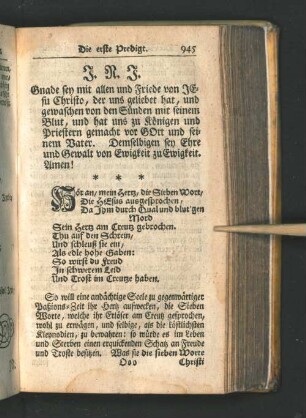 Die erste Predigt. 945
J. N. J.
Gnade sey mit allen und Friede von JE-
su Christo, der uns geliebet hat, und
gewaschen von den Sünden mit seinem
Blut, und hat uns zu Königen und
Priestern gemacht vor GOtt und sei-
nem Vater. Demselbigen sey Ehre
und Gewalt von Ewigkeit zu Ewigkeit.
Amen!
* * *
Hör an, mein Hertz, die Sieben Wort,
Die JEsus ausgesprochen,
Da Jhm durch Quaal und blut'gen
Mord
Sein Hertz am Creutz gebrochen.
Thu auf den Schrein,
Und schleuß sie ein,
Als edle hohe Gaben:
So wirst du Freud
Jn schwerem Leid
Und Trost im Creutze haben.
So will eine andächtige Seele zu gegenwärtiger
Paßions-Zeit ihr Hertz aufwecken, die Sieben
Worte, welche ihr Erlöser am Creutz gesprochen,
wohl zu erwägen, und selbige, als die köstlichsten
Kleinodien, zu bewahren: so würde es im Leben
und Sterben einen erquickenden Schatz an Freude
und Troste besitzen. Was sie die sieben Worte
Ooo Christi